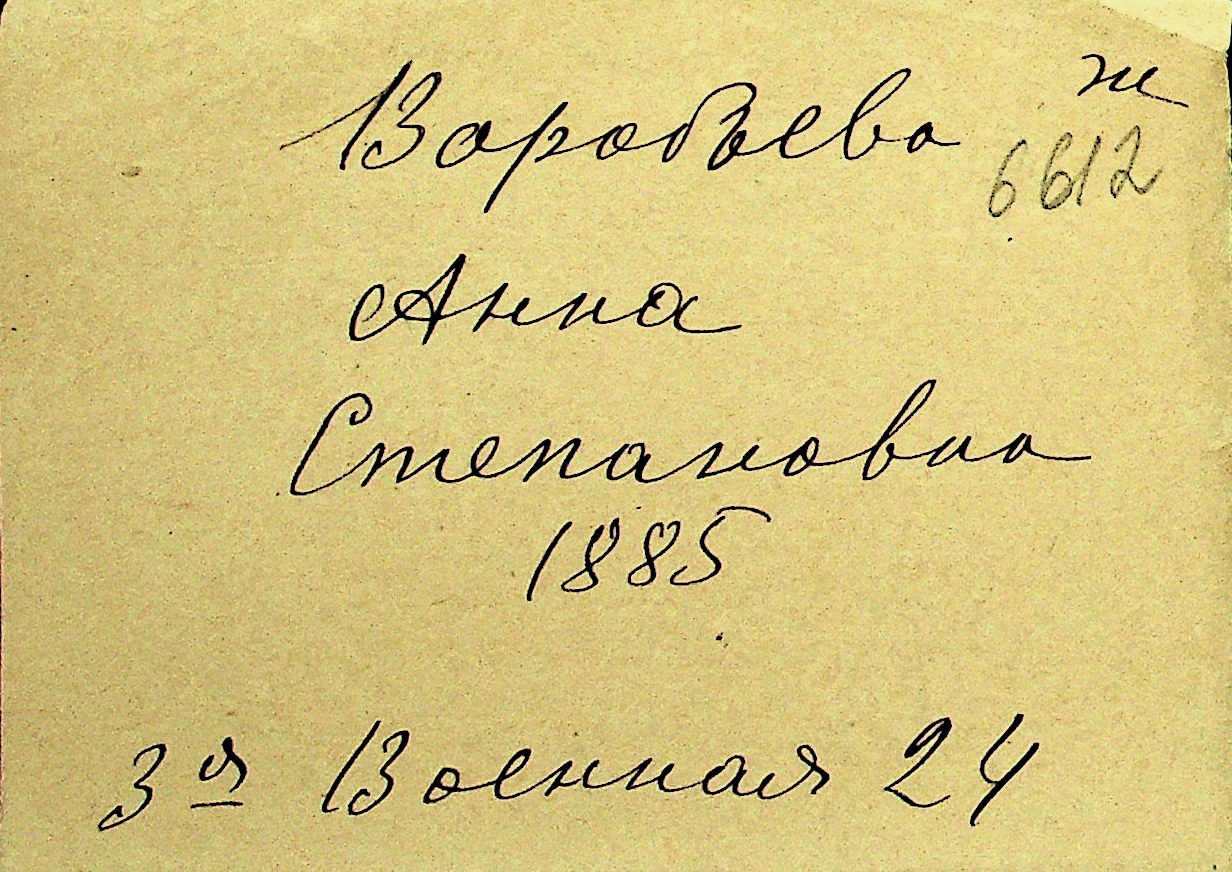 Воробьева ж
6612
Анна
Степановна
1885
3я Военная 24